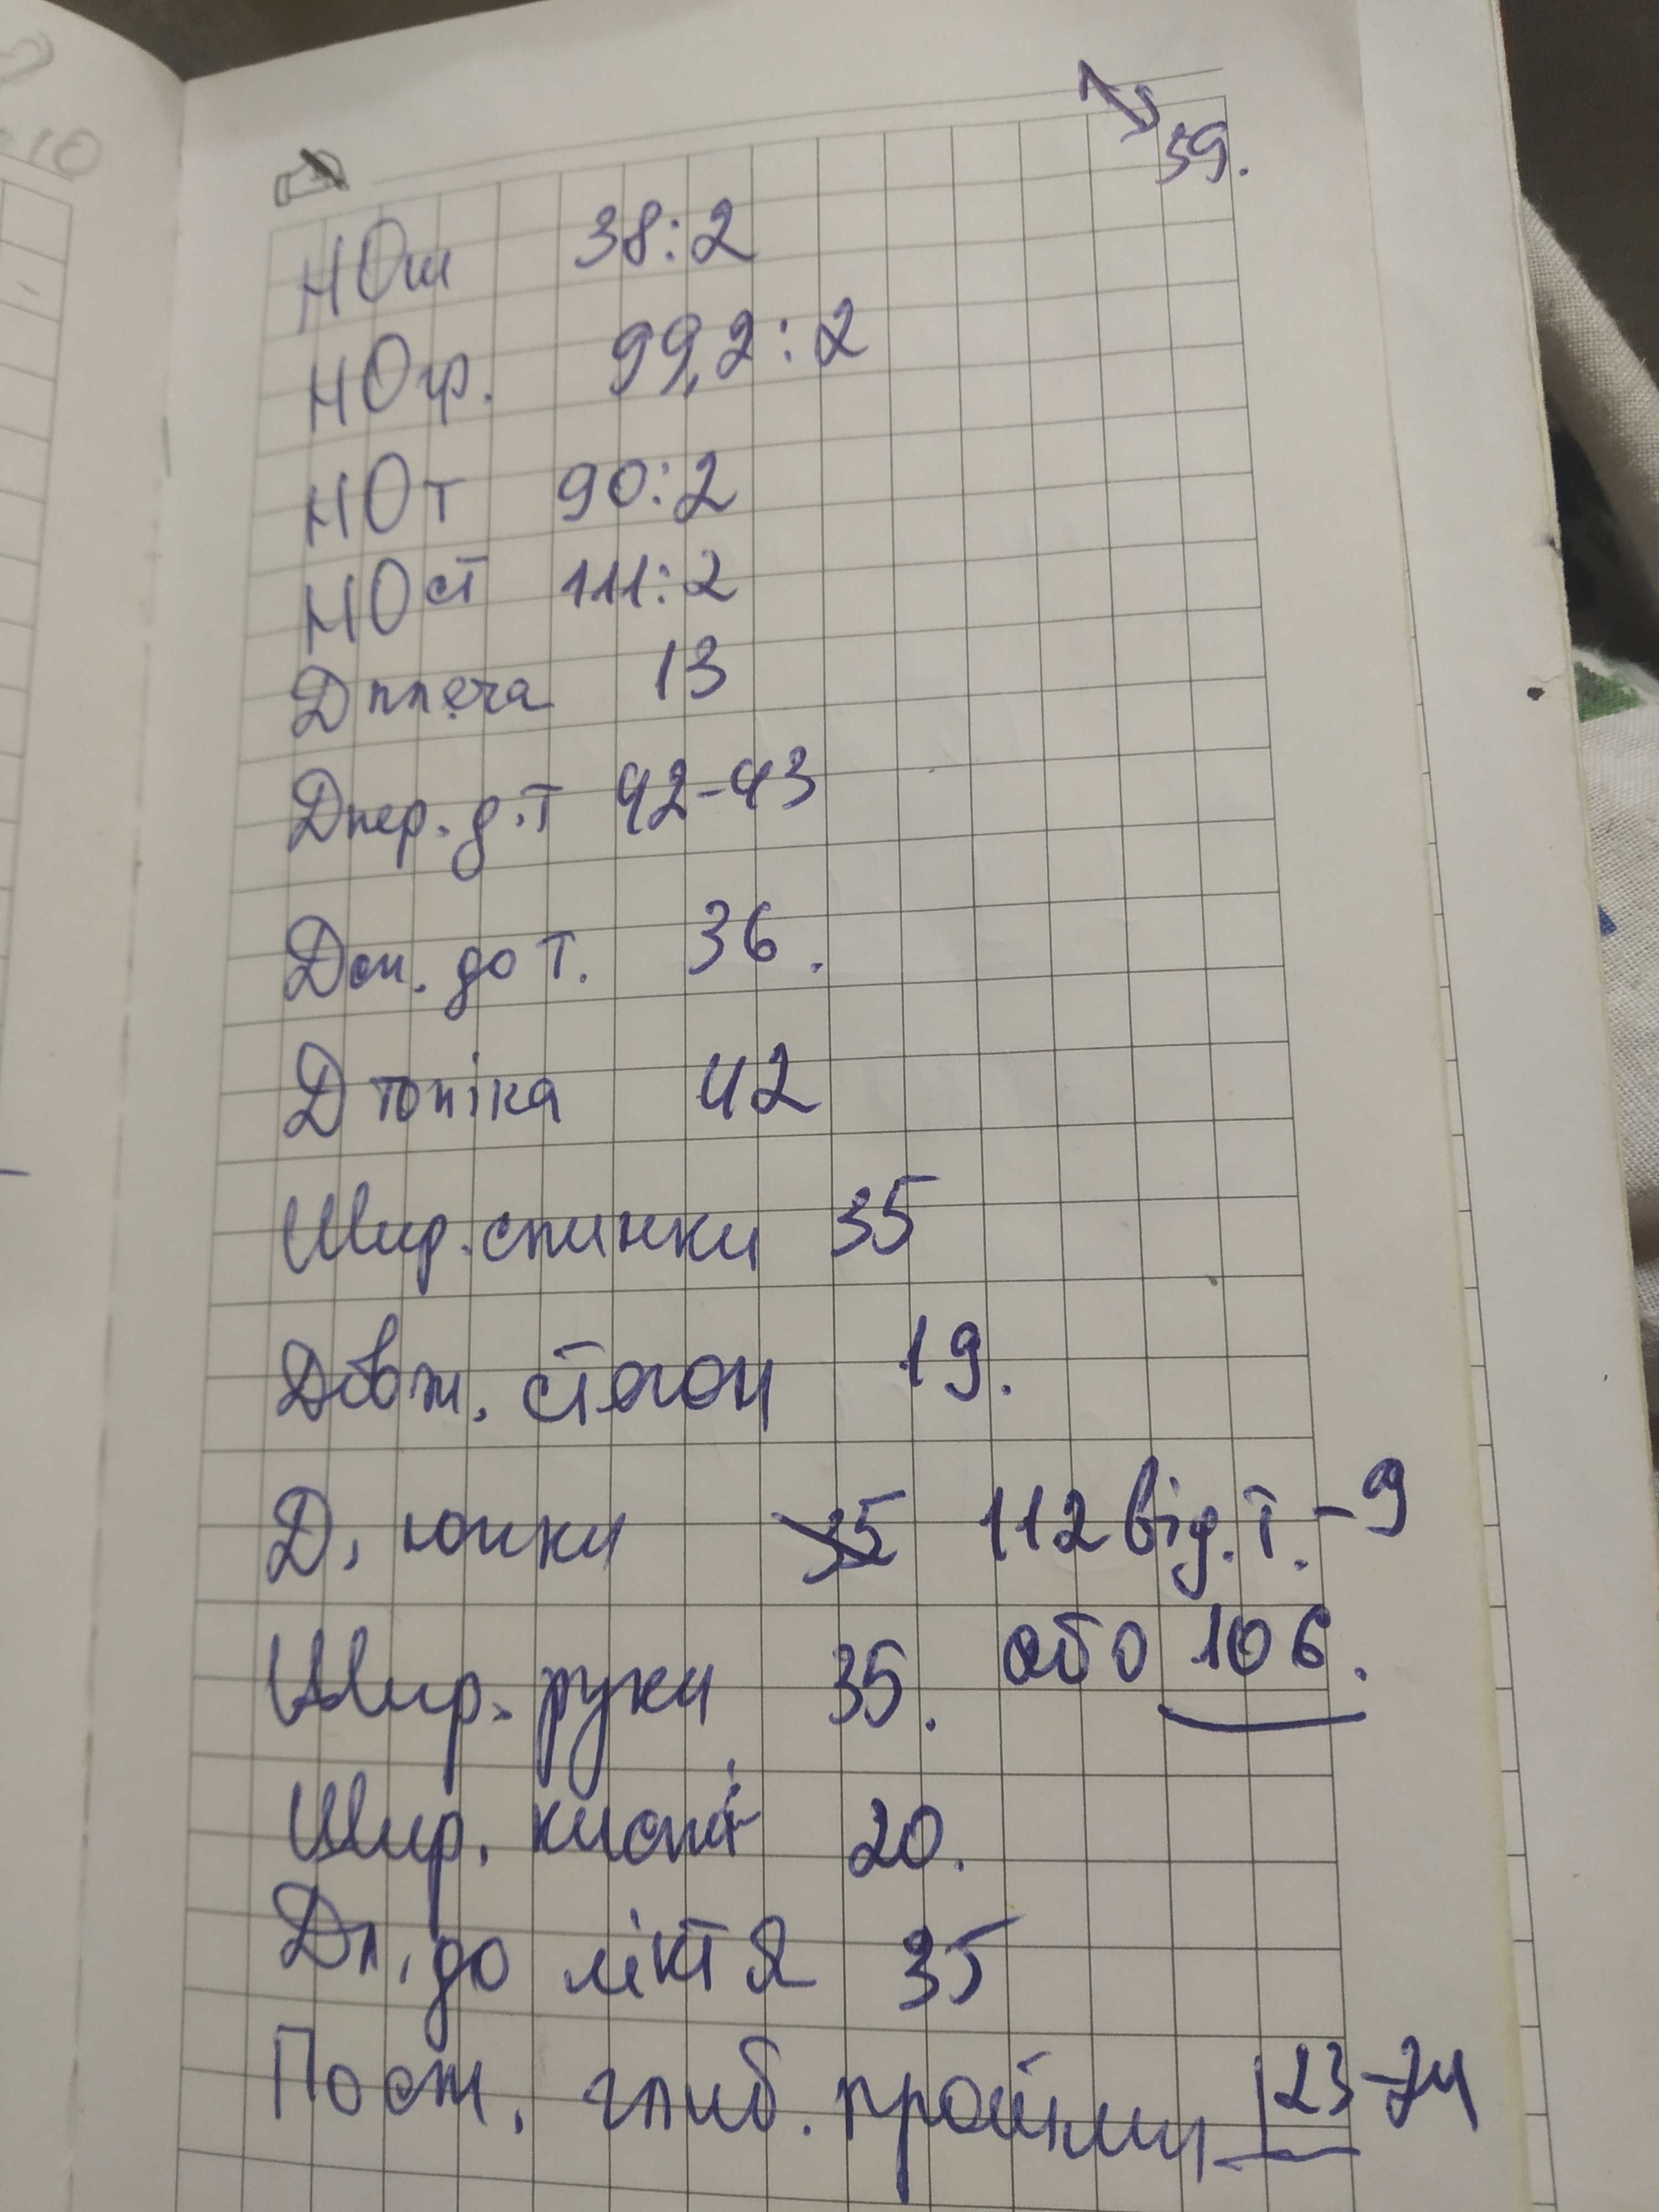 39.
НОш 38:2
НОгр. 99,2:2
НОт 90:2
НОст 111:2
Дплеча 13
Дпер. д.т 42-43
Дсп. до т. 36.
Дтопіка 42
Шир. спинки 35
Довж. стегон 19.
Д. юпки 35 112 від. т. - 9
або 106.
Шир. руки 35.
Шир. кисті 20.
Дл. до ліктя 35
Посм. глиб. пройми 23-24